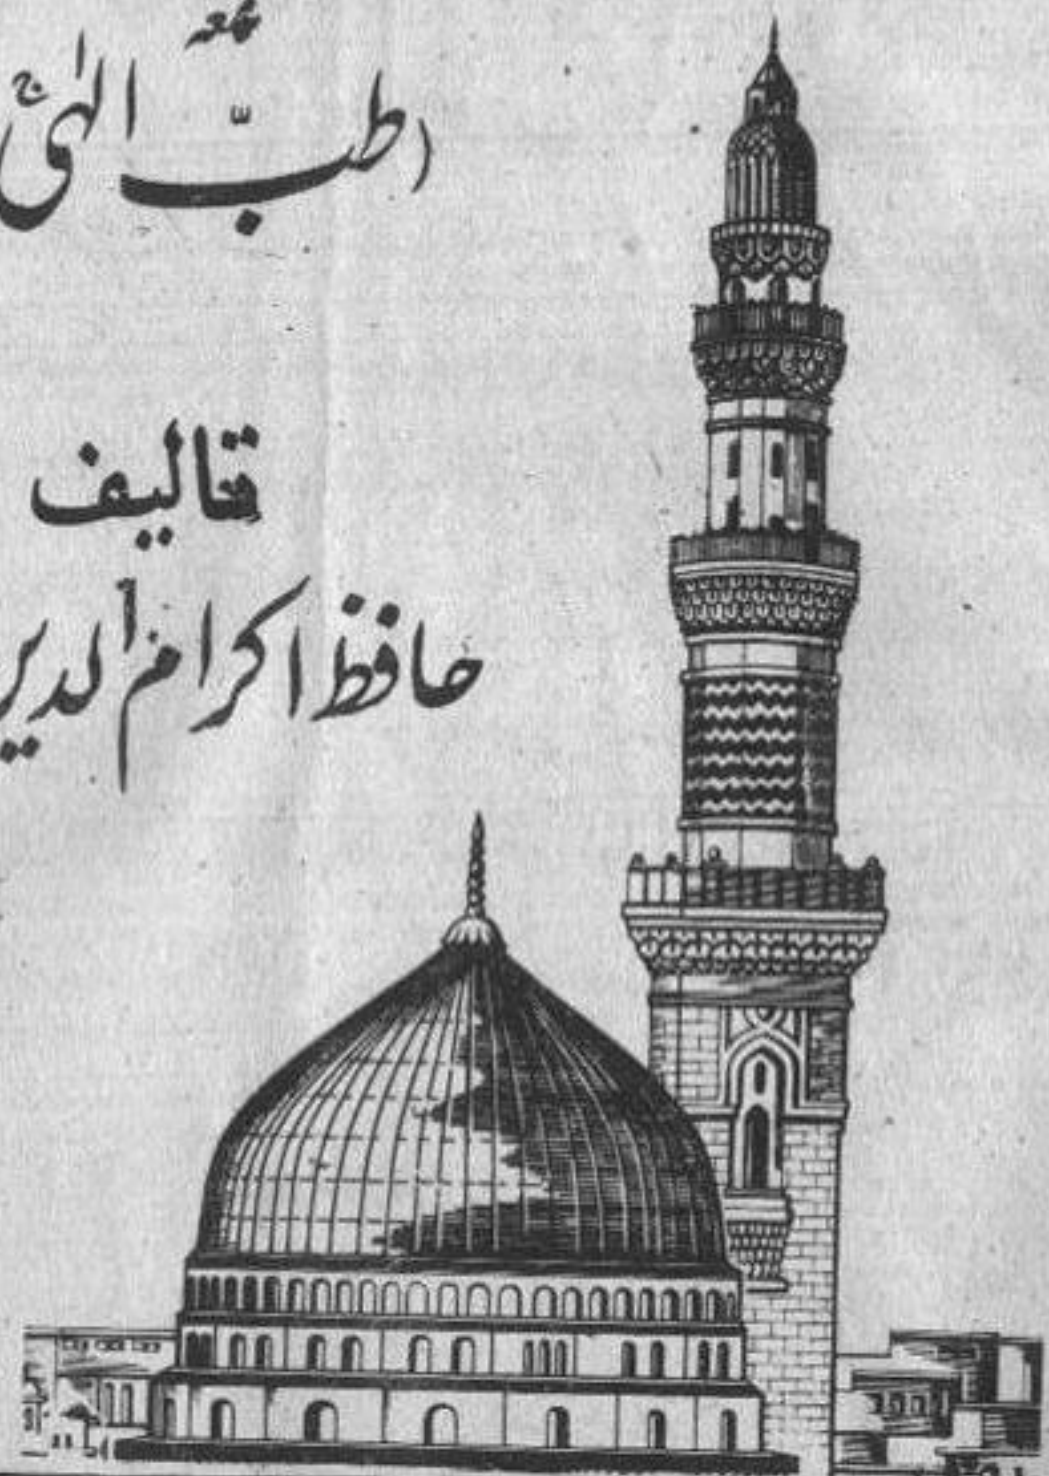 معہ
(طبّ الٰہی
تالیف
حافظ اکرام الدین